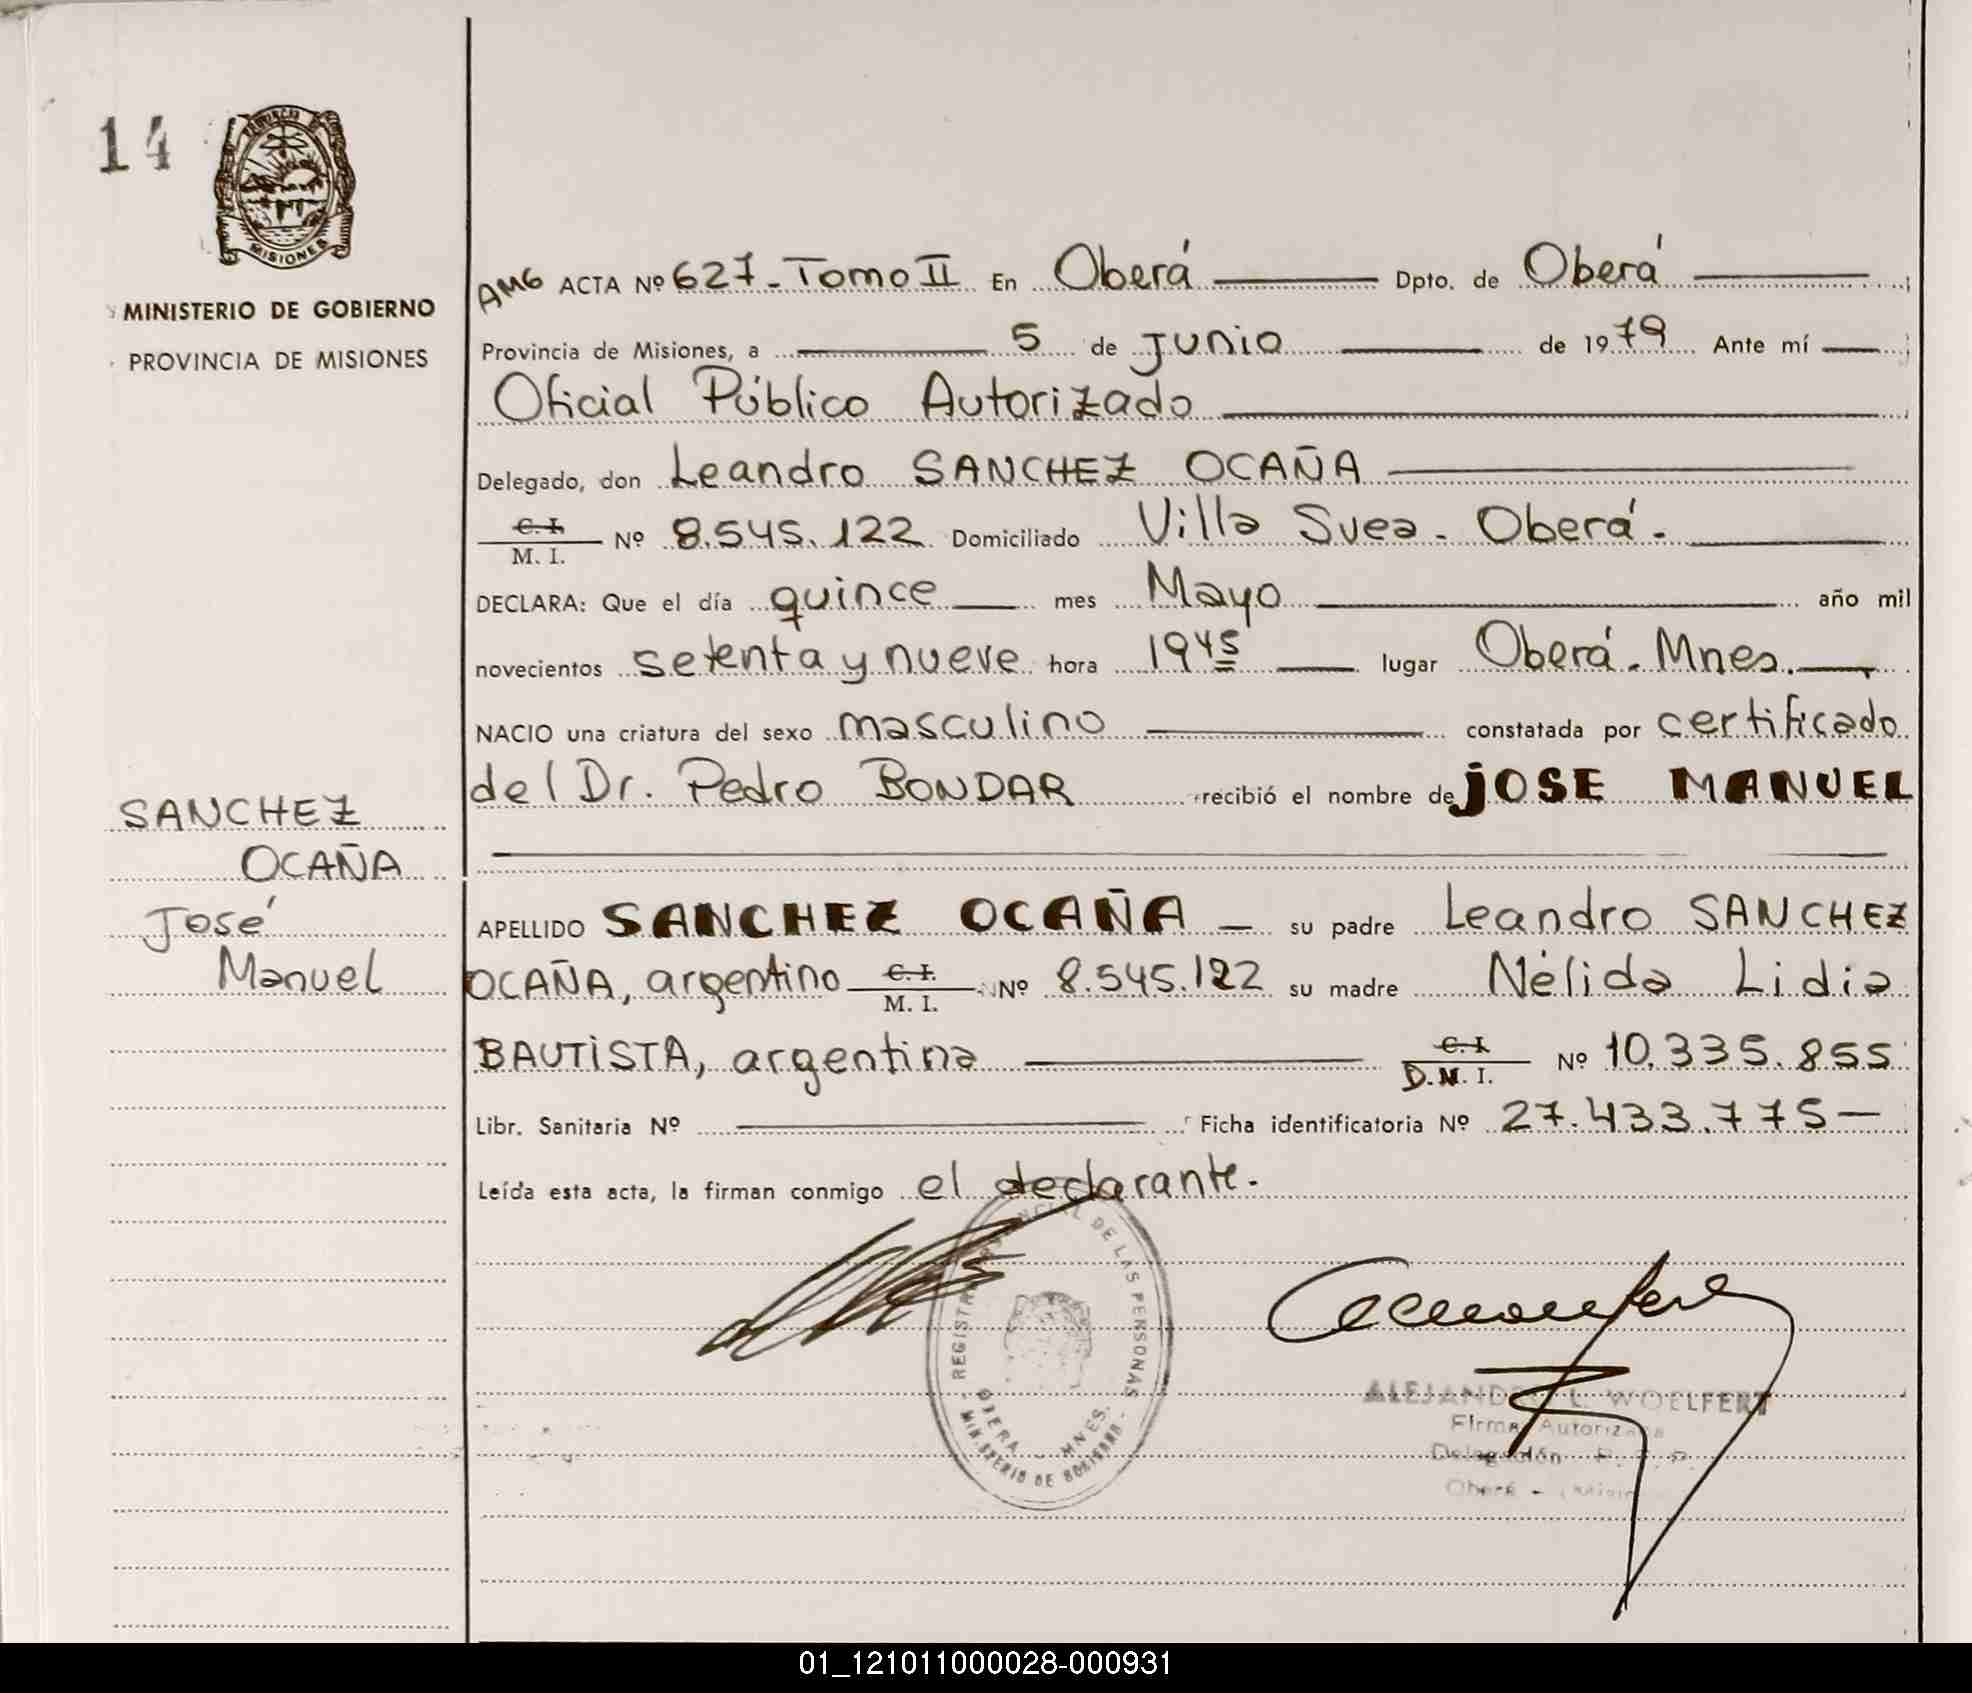 14
PROVINCIA DE
MISIONES
MINISTERIO DE GOBIERNO
PROVINCIA DE MISIONES
SANCHEZ
OCAÑA
José
Manuel
AMG ACTA Nº 627 - Tomo II En Oberá Dpto. de Oberá
Provincia de Misiones, a 5 de Junio de 1979 Ante mí
Oficial Público Autorizado
Delegado, don Leandro SANCHEZ OCAÑA
C. I.
M. I. Nº 8.545.122 Domiciliado Villa Svea - Oberá.
DECLARA: Que el día quince mes Mayo año mil
novecientos setenta y nueve hora 19 45 lugar Oberá. Mnes.
NACIO una criatura del sexo masculino constatada por certificado
del Dr. Pedro BONDAR recibió el nombre de JOSE MANUEL
APELLIDO SANCHEZ OCAÑA su padre Leandro SANCHEZ
OCAÑA, argentino C. I. M. I. Nº 8.545.122 su madre Nélida Lidia
BAUTISTA, argentina C. I. D.N. I. Nº 10.335.855
Libr. Sanitaria Nº Ficha identificatoria Nº 27.433.775
Leída esta acta, la firman conmigo el declarante.
REGISTRO PROVINCIAL DE LAS PERSONAS
OBERA - MNES.
MINISTERIO DE GOBIERNO
ALEJANDRO L. WOELFERT
Firma Autorizada
Delegación R. P. P.
Oberá - Misiones
01_121011000028-000931